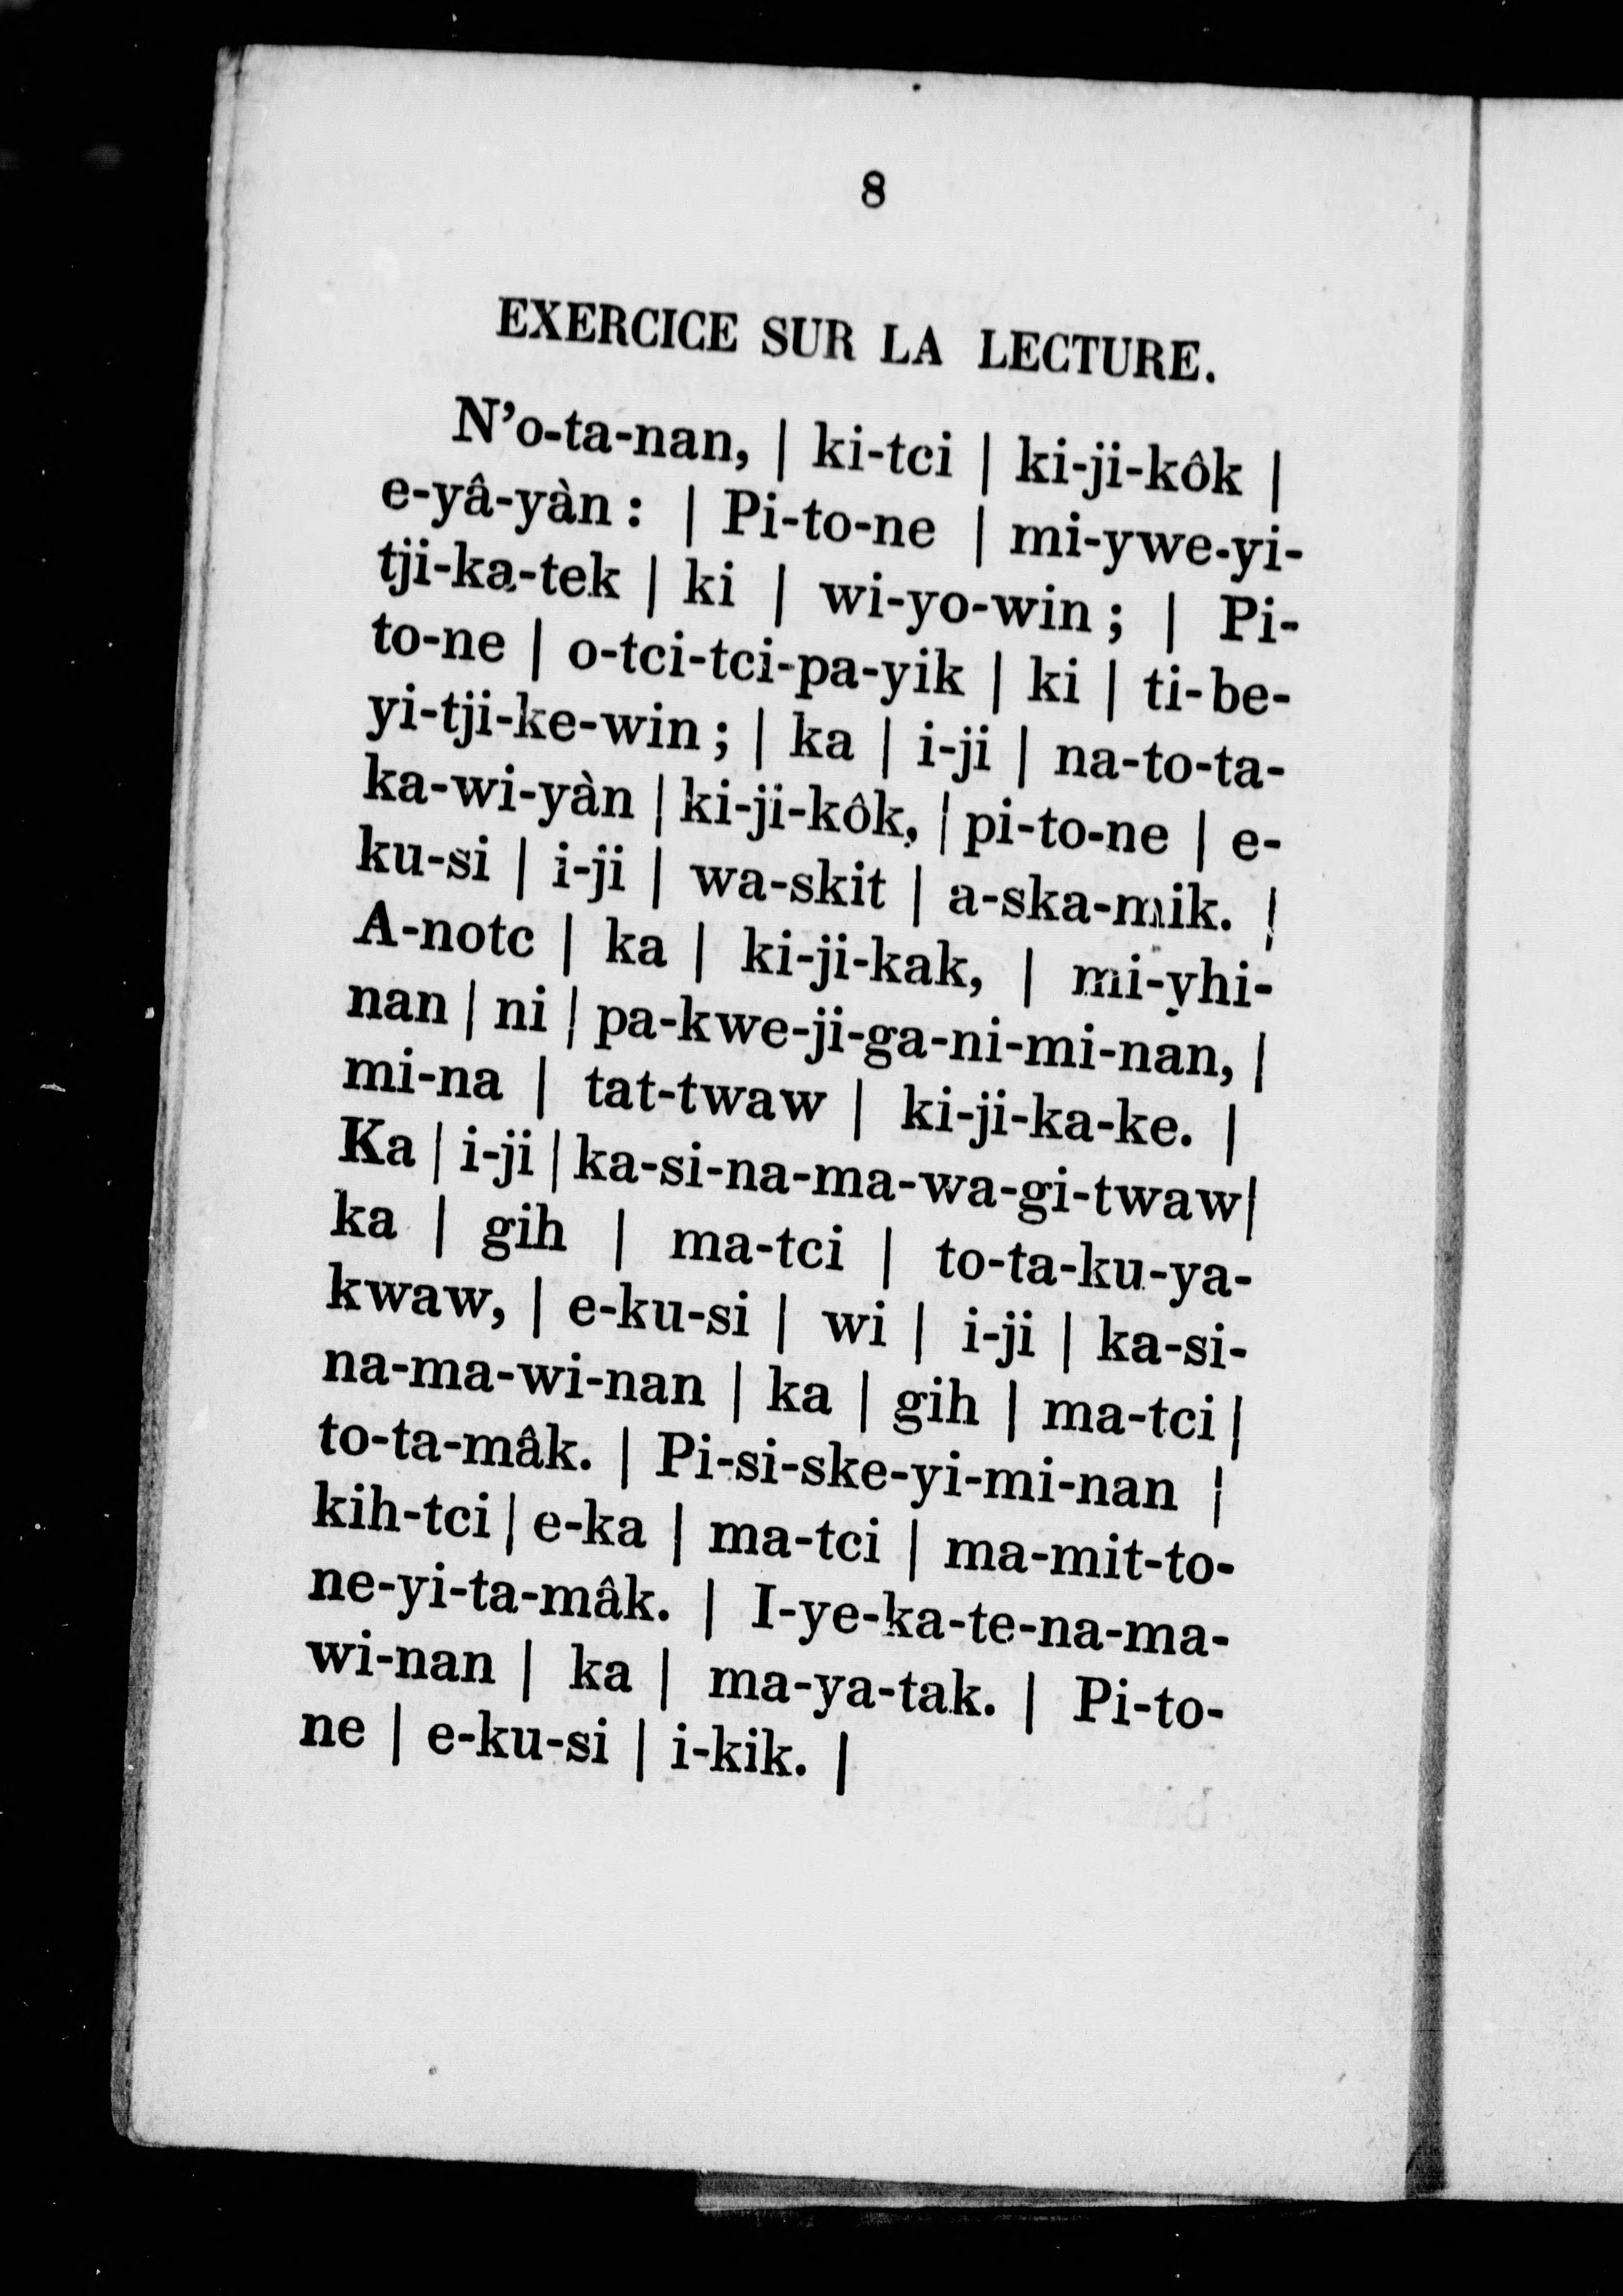 8
EXERCICE SUR LA LECTURE.
N'o-ta-nan, | ki-tci | ki-ji-kôk |
e-yâ-yàn : | Pi-to-ne | mi-ywe-yi-
tji-ka-tek | ki | wi-yo-win ; | Pi-
to-ne | o-tci-tci-pa-yik | ki | ti-be-
yi-tji-ke-win ; | ka | i-ji | na-to-ta-
ka-wi-yàn | ki-ji-kôk, | pi-to-ne | e-
ku-si | i-ji | wa-skit | a-ska-mik. |
A-notc | ka | ki-ji-kak, | mi-yhi-
nan | ni | pa-kwe-ji-ga-ni-mi-nan, |
mi-na | tat-twaw | ki-ji-ka-ke. |
Ka | i-ji | ka-si-na-ma-wa-gi-twaw|
ka | gih | ma-tci | to-ta-ku-ya-
kwaw, | e-ku-si | wi | i-ji | ka-si-
na-ma-wi-nan | ka | gih | ma-tci |
to-ta-mâk. | Pi-si-ske-yi-mi-nan |
kih-tci | e-ka | ma-tci | ma-mit-to-
ne-yi-ta-mâk. | I-ye-ka-te-na-ma-
wi-nan | ka | ma-ya-tak. | Pi-to-
ne | e-ku-si | i-kik. |